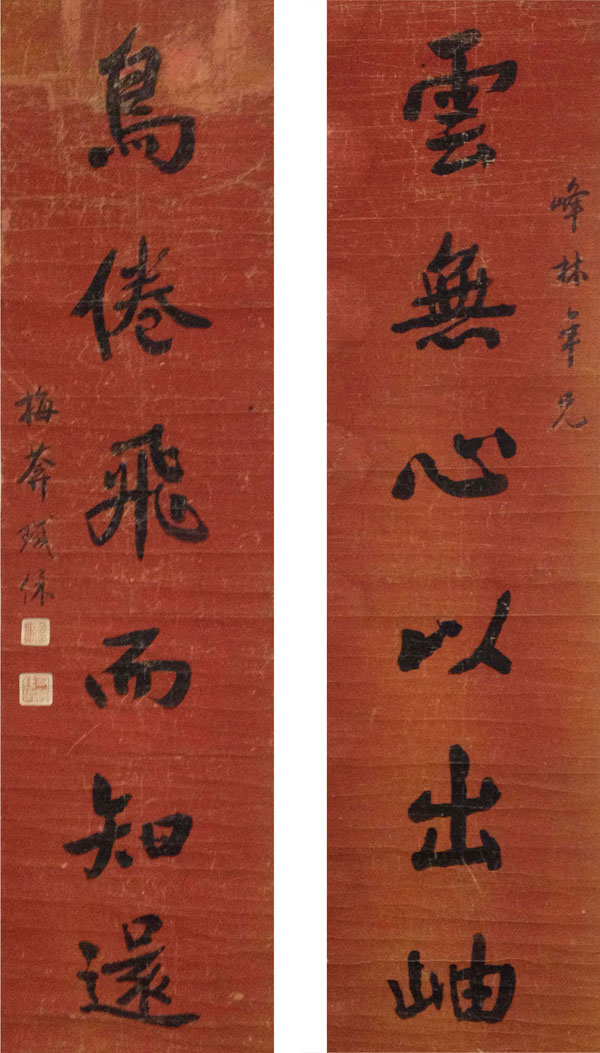 峰林年兄
雲無心以出岫
鳥倦飛而知還
梅葊鐵保